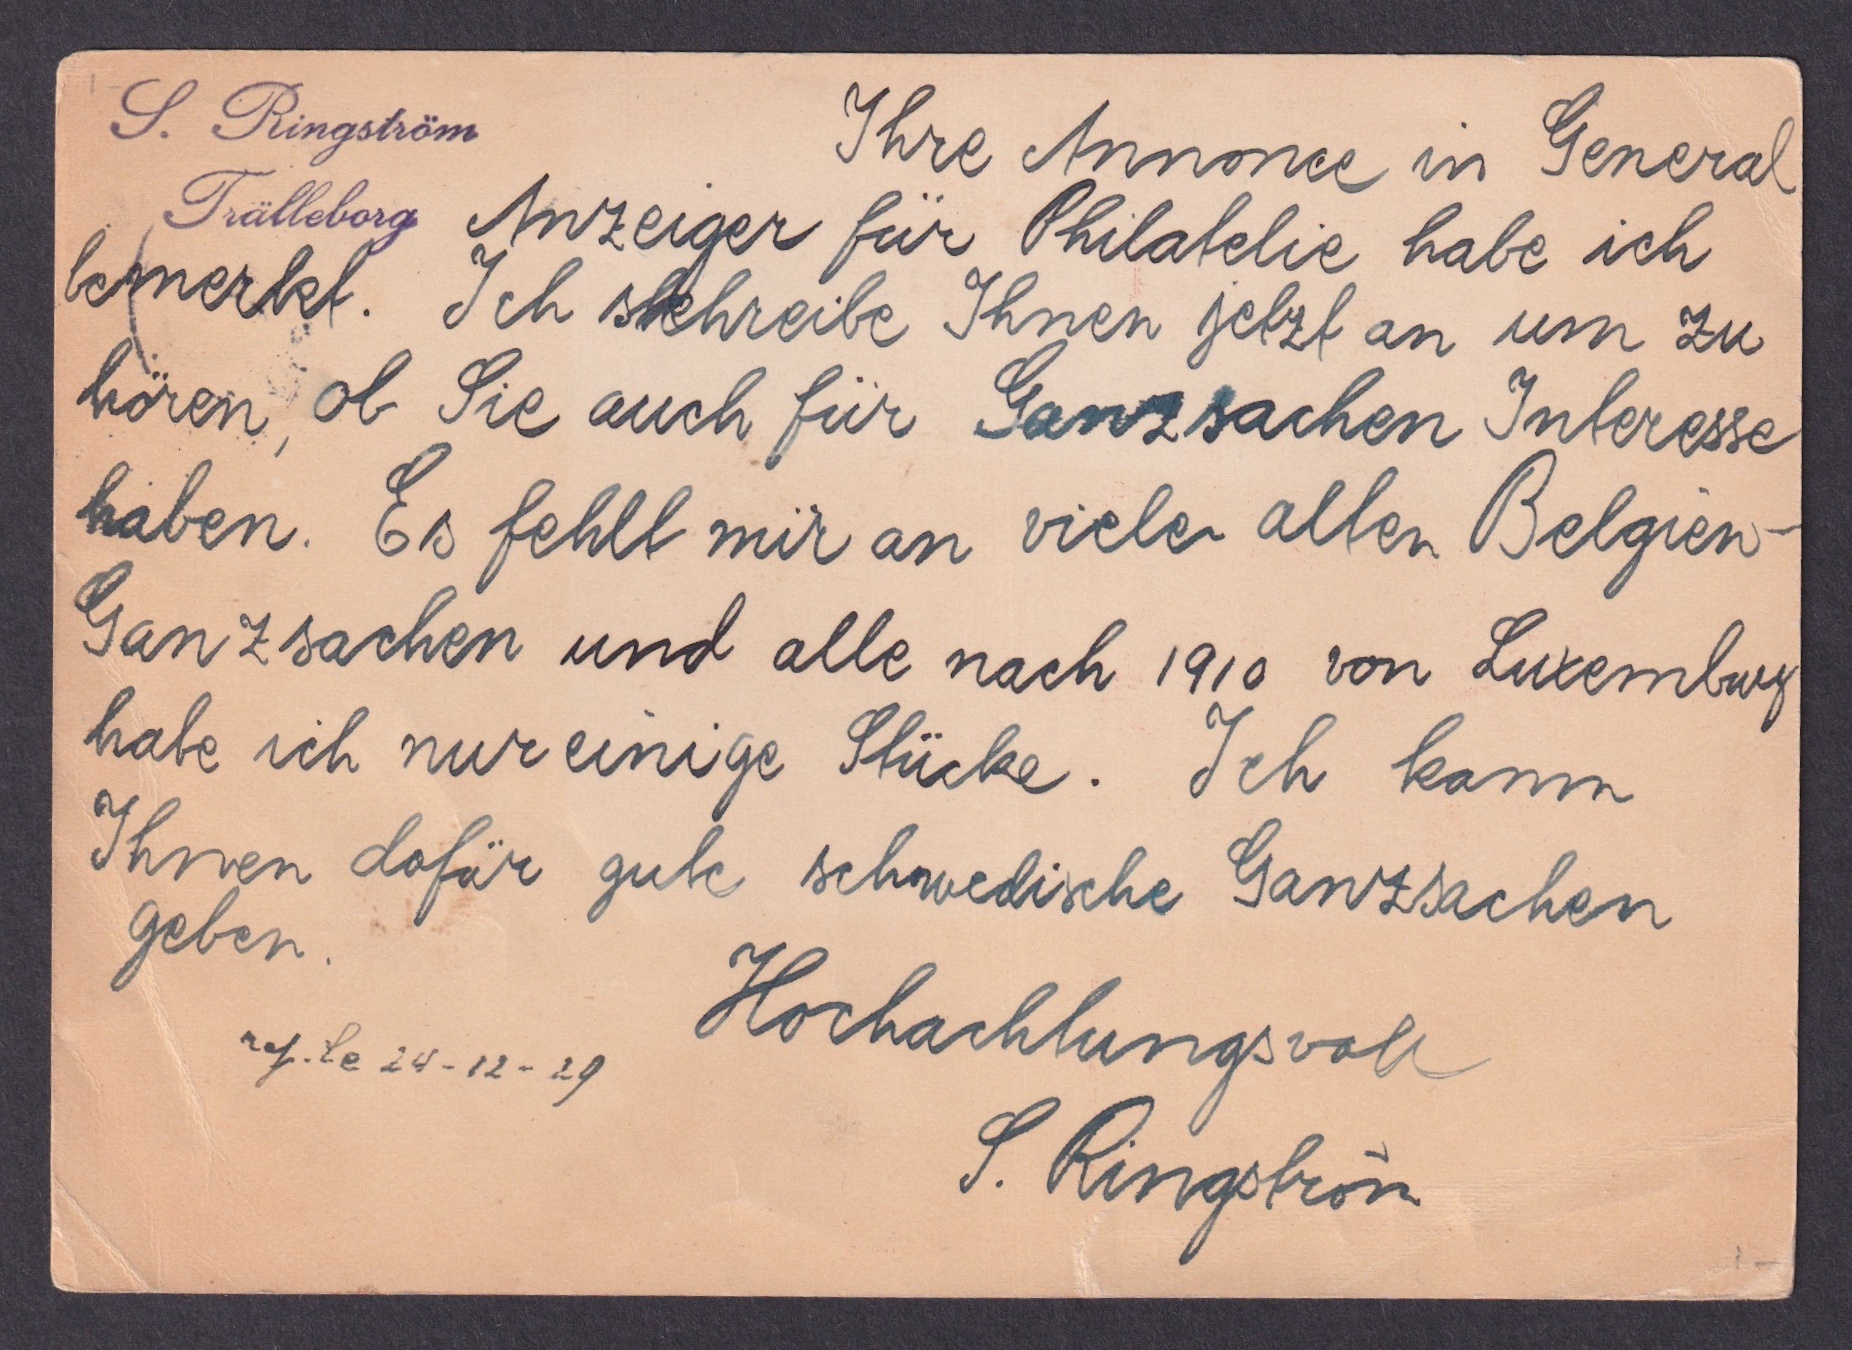 S. Ringström
Trälleborg
Ihre Annonce in General
Anzeiger für Philatelie habe ich
bemerket. Ich schreibe Ihnen jetzt an um zu
hören, ob Sie auch für Ganzsachen Interesse
haben. Es fehlt mir an viele alten Belgien-
Ganzsachen und alle nach 1910 von Luxemburg
habe ich nur einige Stücke. Ich kann
Ihnen dafür gute schwedische Ganzsachen
geben.
Hochachtungsvoll
rep. le 24-12-29
S. Ringström